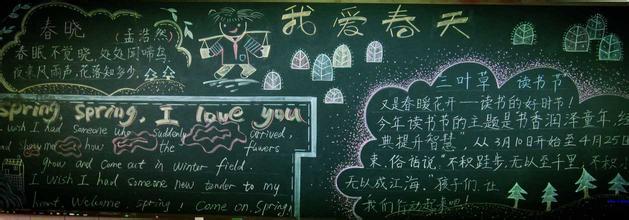 我爱春天
春晓
(孟浩然)
春眠不觉晓,处处闻啼鸟,
夜来风雨声,花落知多少。
Spring, Spring, I love you
I wish I had someone who suddenly arrived,
and show me how the flowers
grow and come out in winter field.
I wish I had someone new tender to my
heart. Welcome, spring! Come on, Spring
三叶草 读书节
又是春暖花开——读书的好时节!
今年读书节的主题是书香润泽童年,经
典提升智慧" 从3月10日开始至4月25日
束,俗话说"不积跬步,无以至千里,不积
无以成江海."孩子们,让
我们行动起来吧!